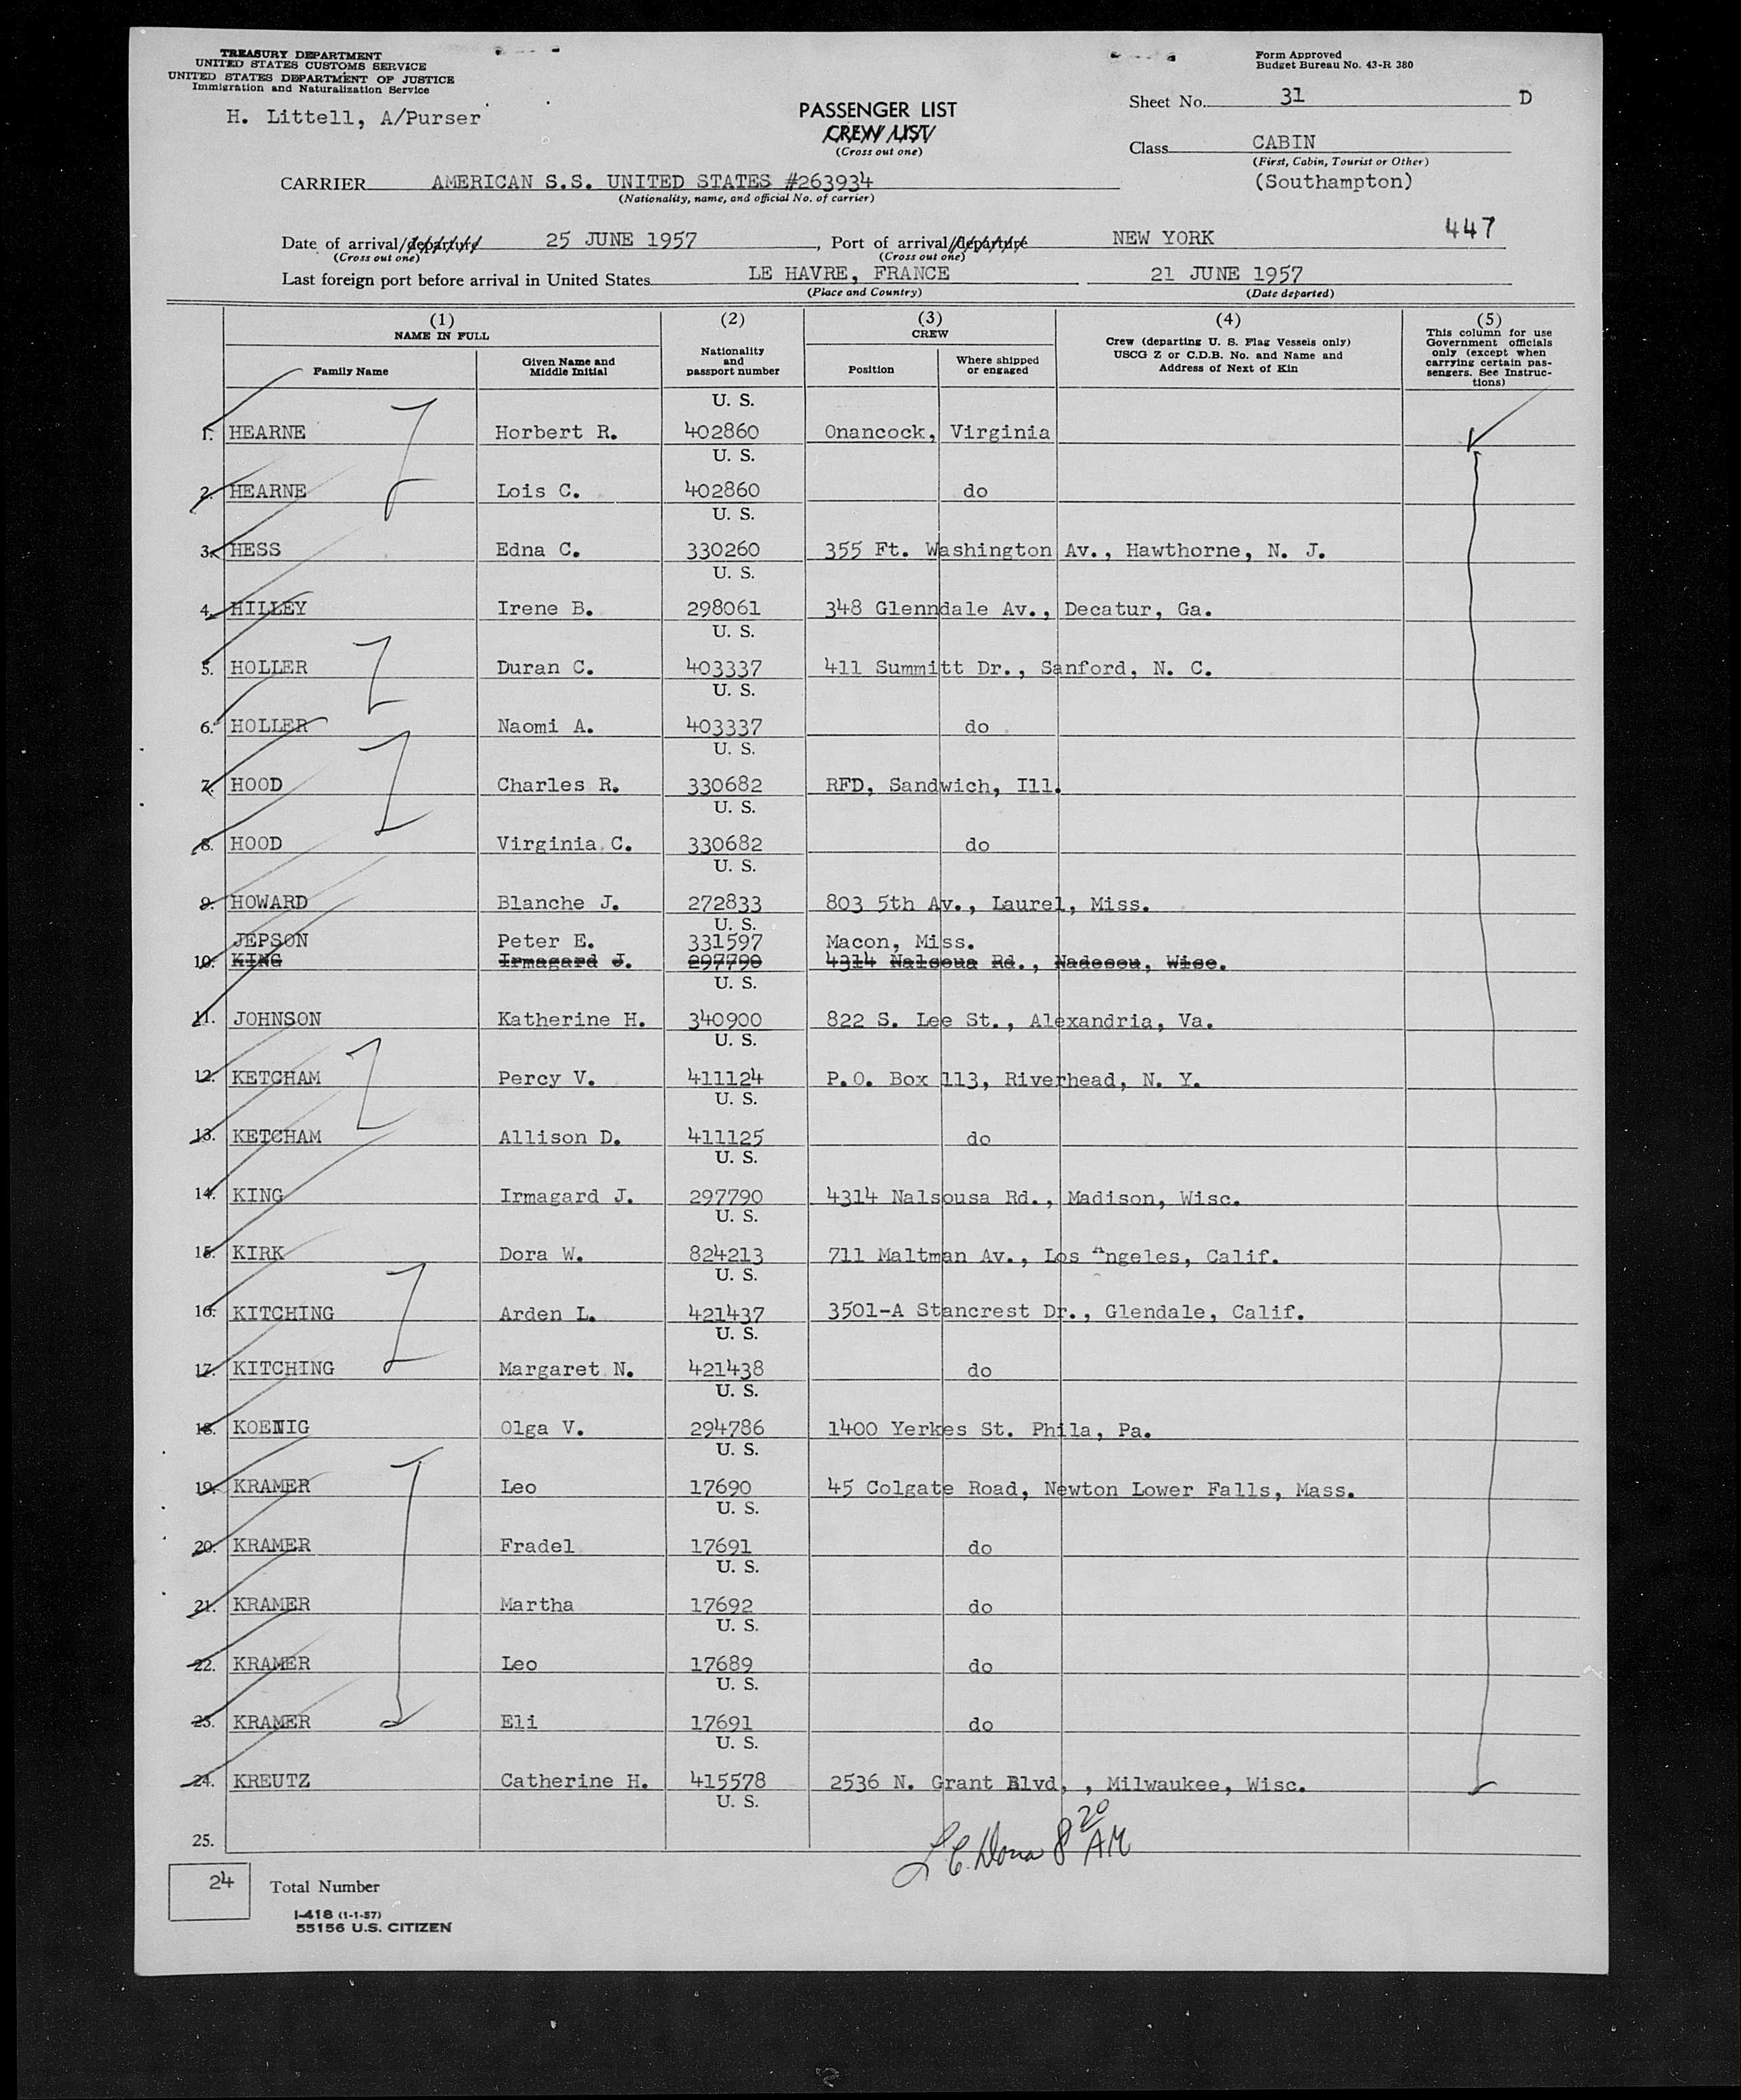 TREASURY DEPARTMENT
UNITED STATES CUSTOMS SERVICE
UNITED STATES DEPARTMENT OF JUSTICE
Immigration and Naturalization Service
H. Littell, A/Purser
Form Approved
Budget Bureau No. 43-R 380
PASSENGER LIST
CREW LIST
(Cross out one)
Sheet No. 31 D
Class CABIN
(First, Cabin, Tourist or Other)
(Southampton)
CARRIER AMERICAN S.S. UNITED STATES #263934
(Nationality, name, and official No. of carrier)
447
Date of arrival/departure 25 JUNE 1957, Port of arrival/departure NEW YORK
(Cross out one) (Cross out one)
Last foreign port before arrival in United States LE HAVRE, FRANCE 21 JUNE 1957
(Place and Country) (Date departed)
(1) NAME IN FULL
Family Name
Given Name and Middle Initial
(2) Nationality and passport number
(3) CREW
Position
Where shipped or engaged
(4) Crew (departing U. S. Flag Vessels only) USCG Z or C.D.B. No. and Name and Address of Next of Kin
(5) This column for use Government officials only (except when carrying certain passengers. See Instructions)
U. S.
1. HEARNE Horbert R. 402860 Onancock, Virginia
U. S.
2. HEARNE Lois C. 402860 do
U. S.
3. HESS Edna C. 330260 355 Ft. Washington Av., Hawthorne, N. J.
U. S.
4. HILLEY Irene B. 298061 348 Glenndale Av., Decatur, Ga.
U. S.
5. HOLLER Duran C. 403337 411 Summitt Dr., Sanford, N. C.
U. S.
6. HOLLER Naomi A. 403337 do
U. S.
7. HOOD Charles R. 330682 RFD, Sandwich, Ill.
U. S.
8. HOOD Virginia C. 330682 do
U. S.
9. HOWARD Blanche J. 272833 803 5th Av., Laurel, Miss.
U. S.
JEPSON Peter E. 331597 Macon, Miss.
10. KING Irmagard J. 297790 4314 Nalsoua Rd., Nadesou, Wisc.
U. S.
11. JOHNSON Katherine H. 340900 822 S. Lee St., Alexandria, Va.
U. S.
12. KETCHAM Percy V. 411124 P.O. Box 113, Riverhead, N. Y.
U. S.
13. KETCHAM Allison D. 411125 do
U. S.
14. KING Irmagard J. 297790 4314 Nalsousa Rd., Madison, Wisc.
U. S.
15. KIRK Dora W. 824213 711 Maltman Av., Los Angeles, Calif.
U. S.
16. KITCHING Arden L. 421437 3501-A Stancrest Dr., Glendale, Calif.
U. S.
17. KITCHING Margaret N. 421438 do
U. S.
18. KOENIG Olga V. 294786 1400 Yerkes St. Phila, Pa.
U. S.
19. KRAMER Leo 17690 45 Colgate Road, Newton Lower Falls, Mass.
U. S.
20. KRAMER Fradel 17691 do
U. S.
21. KRAMER Martha 17692 do
U. S.
22. KRAMER Leo 17689 do
U. S.
23. KRAMER Eli 17691 do
U. S.
24. KREUTZ Catherine H. 415578 2536 N. Grant Blvd, , Milwaukee, Wisc.
U. S.
25.
8 20 AM
24 Total Number
I-418 (1-1-57)
55156 U.S. CITIZEN